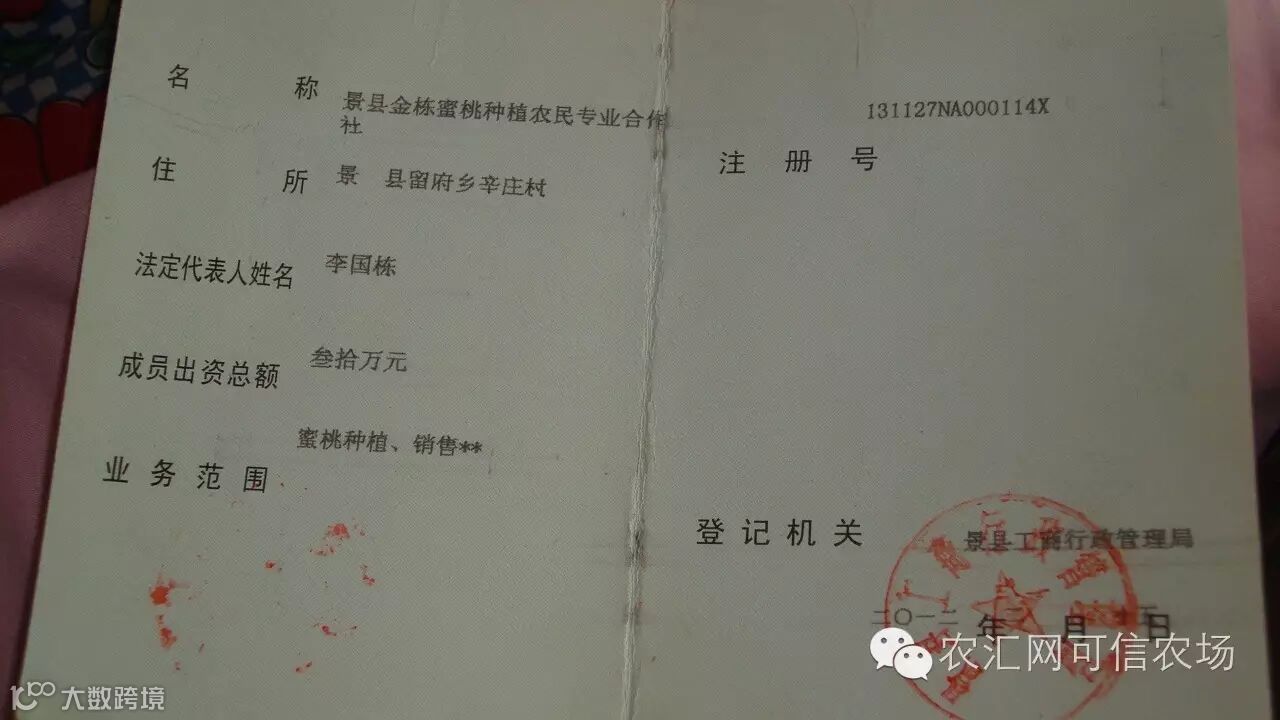 名 称 景县金栋蜜桃种植农民专业合作
社
住 所 景 县留府乡辛庄村
法定代表人姓名 李国栋
成员出资总额 叁拾万元
业务范围 蜜桃种植、销售**
131127NA000114X
注 册 号
登记机关 景县工商行政管理局
二〇一二年 月 日
农汇网可信农场
大数跨境